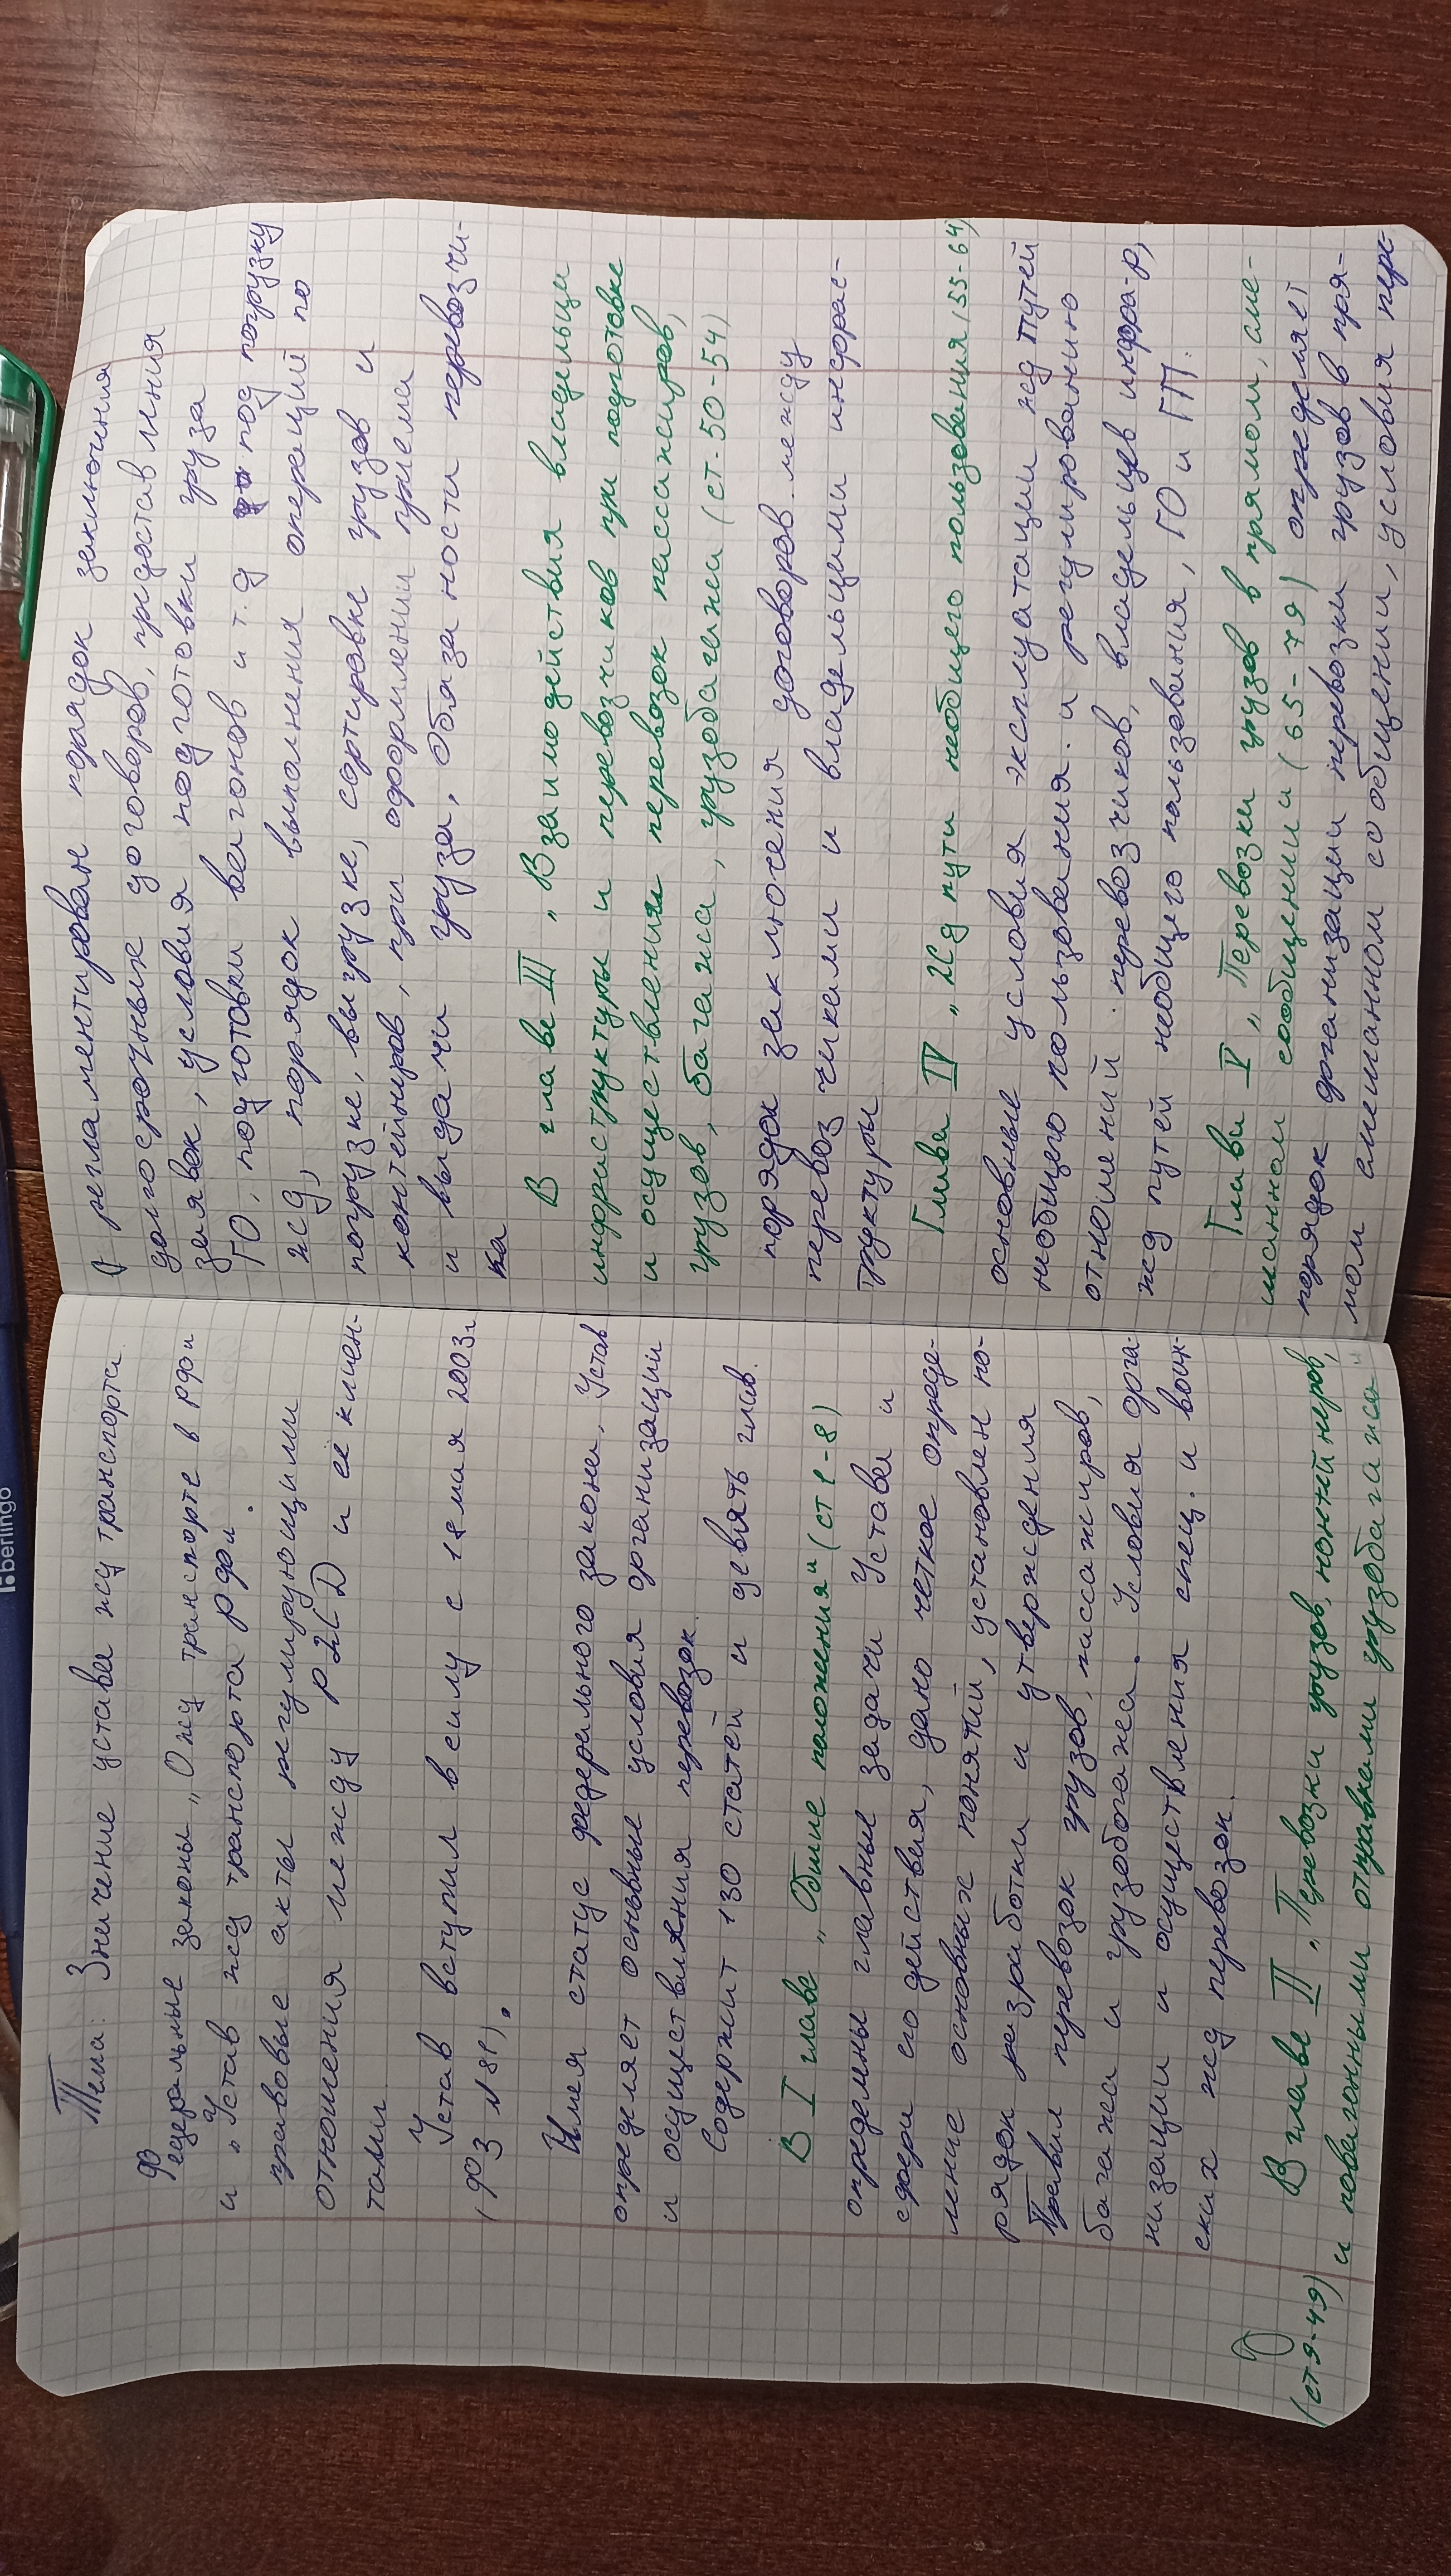 Тема: Значение устава жд транспорта.
Федеральные законы „О жд транспорте в РФ"
и „Устав жд транспорта РФ".
правовые акты регулирующими
отношения между РЖД и её клиен-
тами
Устав вступил в силу с 18 мая 2003г
(ФЗ №18).
Имея статус федерального закона, Устав
определяет основные условия организации
и осуществления перевозок.
Содержит 130 статей и девять глав.
В I главе „Общие положения" (ст 1-8)
определены главные задачи Устава и
сфера его действия, дано четкое опреде-
ление основных понятий, установлен по-
рядок разработки и утверждения
Правил перевозок грузов, пассажиров,
багажа и грузобагажа. Условия орга-
низации и осуществления спец. и воин-
ских жд перевозок.
В главе II „Перевозки грузов, контейнеров,
(ст 9-49) и повагонными отправками грузобагажа
регламентирован порядок заключения
долгосрочных договоров, предоставления
заявок, условия подготовки груза
ГО, подготовки вагонов и т.д под погрузку
жд, порядок выполнения операций по
погрузке, выгрузке, сортировке грузов и
контейнеров, при оформлении приема
и выдачи груза, Обязаности перевозчи-
ка
В главе III „Взаимодействия владельца
инфраструктуры и перевозчиков при подготовке
и осуществлении перевозок пассажиров,
грузов, багажа, грузобагажа (ст-50-54)
порядок заключения договоров между
перевозчиками и владельцами инфрас-
труктуры
Глава IV „Жд пути необщего пользования (55-64)
основные условия эксплуатации жд путей
необщего пользования. и регулированию
отношений перевозчиков, владельцев инфра-р,
жд путей необщего пользования, ГО и ГП.
Глава V „Перевозки грузов в прямом, сме-
шанном сообщении (65-79) определяет
порядок организации перевозки грузов в пря-
мом смешанном сообщении, условия пере-
berlingo